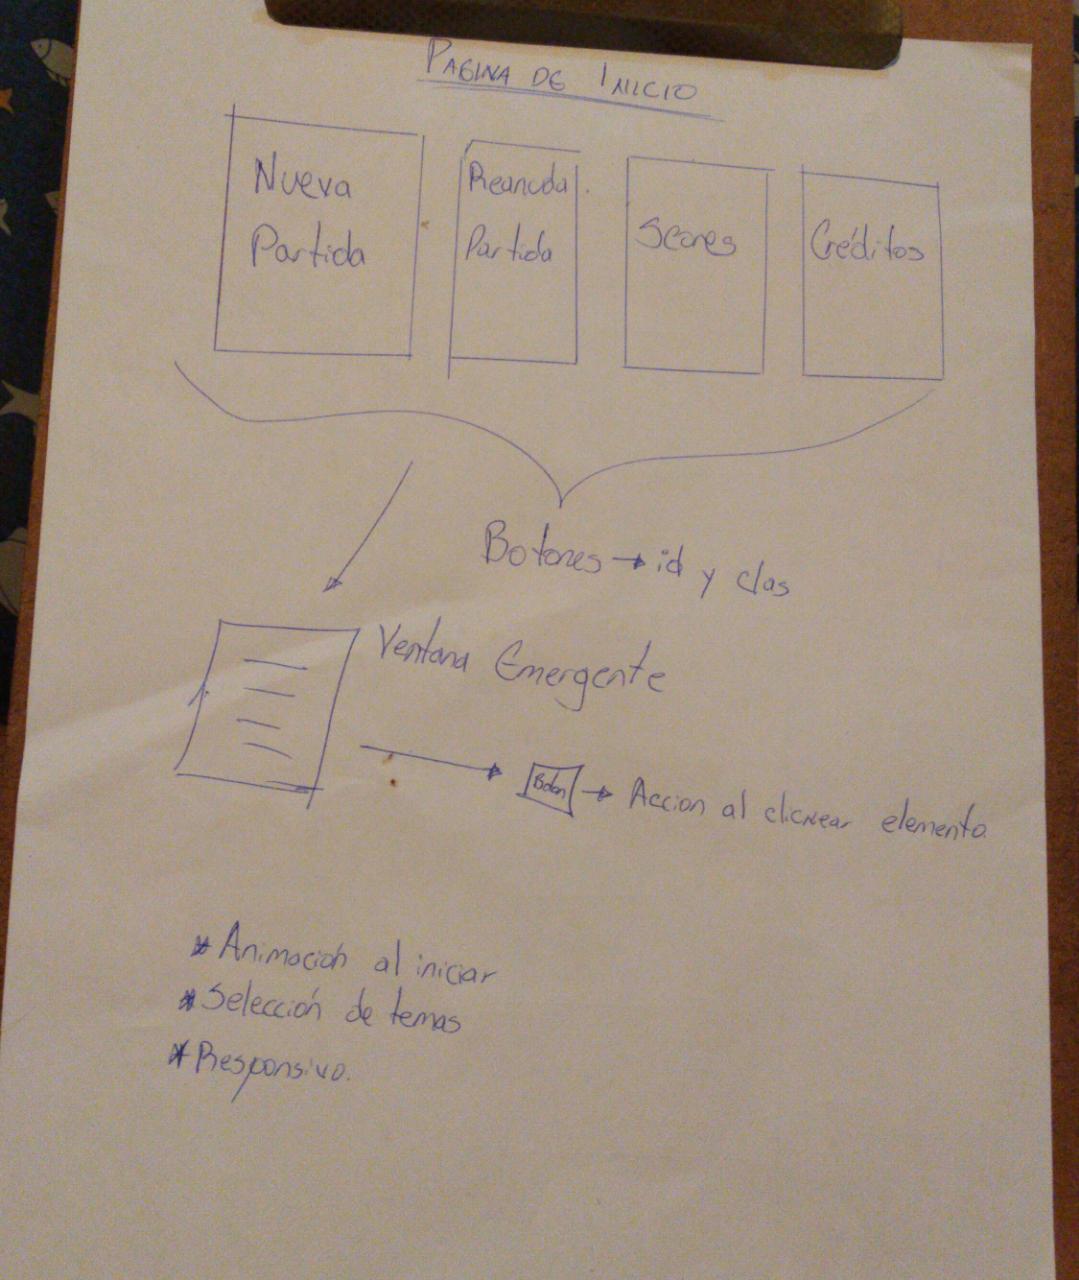 PAGINA DE INICIO
Nueva
Partida
Reanuda
Partida
Scores
Créditos
Botones → id y clas
Ventana Emergente
Boton → Accion al clickear elemento
* Animación al iniciar
* Selección de temas
* Responsivo.